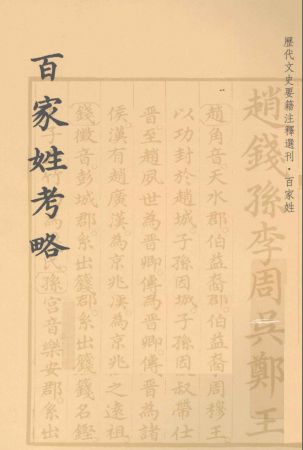 百家姓考略
歷代文史要籍注釋選刊·百家姓
趙錢孫李周吳鄭王
趙角音天水郡伯益裔郡伯益裔周穆王
以功封於趙城子孫因城子孫因叔帶仕
晉至趙夙世為晉卿傳為晉卿傳晉為諸
侯漢有趙廣漢為京兆漢為京兆之遠祖
錢徵音彭城郡系出籛郡系出籛籛名鏗
氏孫宮音樂安郡系出